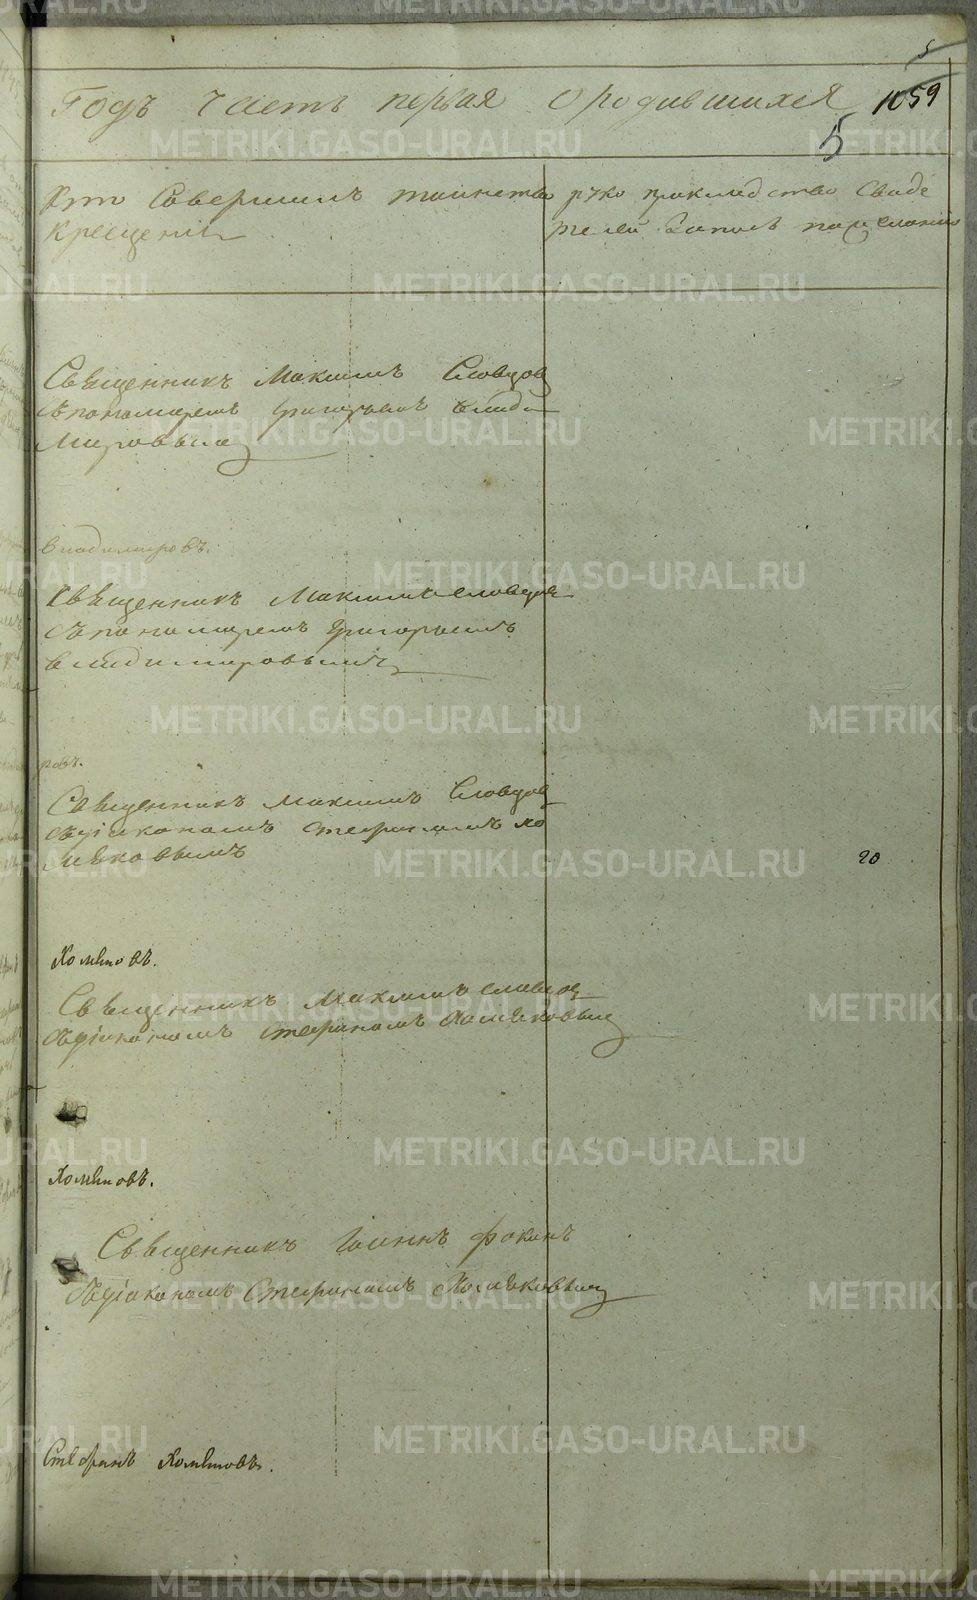 5
Годъ Часть первая О родившихся 1059
5
Кто Совершалъ таинство
Крещенія
руко прикладство Свиде
телей Записи по желанію
Священникъ Максимъ Словцов
съ пономаремъ Григорьемъ Влади
мировымъ
Владимировъ.
Священникъ Максимъ Словцов
съ пономаремъ Григорьемъ
Владимировымъ
ровъ.
Священникъ Максимъ Словцов
съ діакономъ Стефаномъ Хо
мяковымъ
20
Хомяковъ.
Священникъ Максимъ Словцов
съ діакономъ Стефаномъ Хомяковым
Хомяковъ.
Священникъ Іоаннъ Фокинъ
съ діакономъ Стефаномъ Хомяковым
Стефанъ Хомяковъ.
METRIKI.GASO-URAL.RU